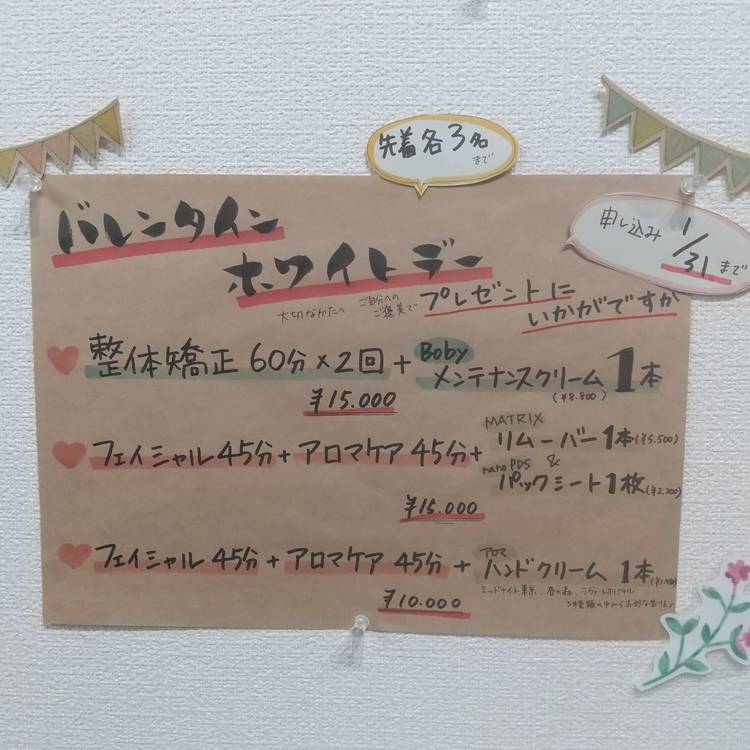 先着各3名
まで
申し込み 1/31まで
バレンタイン
ホワイトデー
大切なかたへ ご自分への
ご褒美で
プレゼントに
いかがですか
整体矯正 60分×2回 + Boby
メンテナンスクリーム 1本
(¥8.800)
¥15.000
フェイシャル 45分 + アロマケア 45分 +
MATRIX
リムーバー 1本 (¥5,500)
nano PDS &
パックシート 1枚 (¥2,200)
¥15.000
フェイシャル 45分 + アロマケア 45分 + アロマ
ハンドクリーム 1本
¥10.000
ミッドナイト東京、香の森、
3種類の中からお好な香りを♪